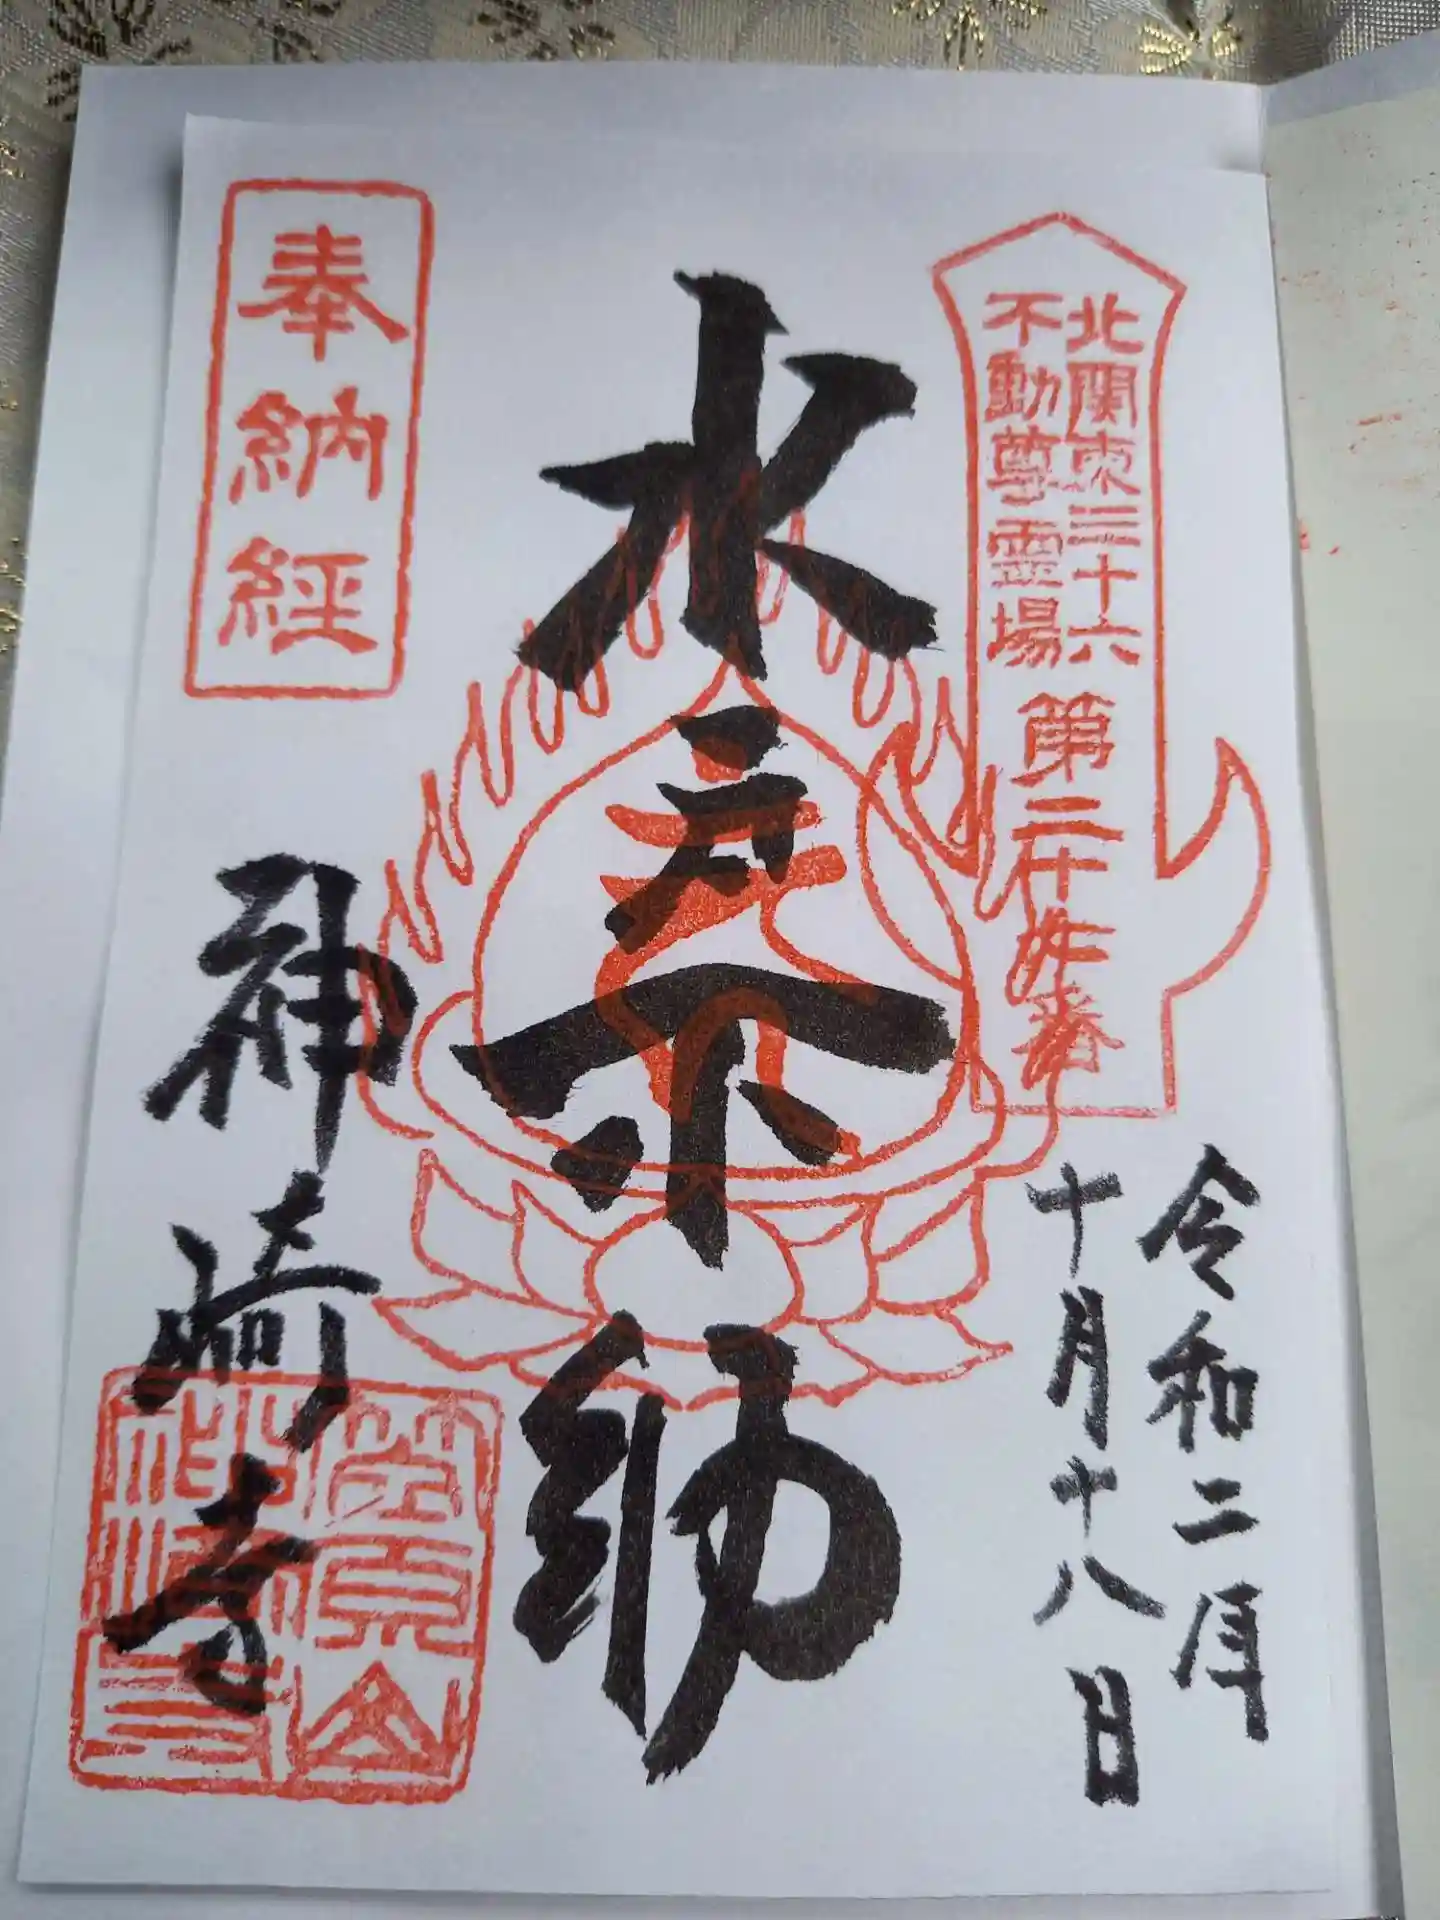 北関東三十六
不動尊霊場
第二十番
令和二年
十月十八日
水戸不動
奉納経
神崎寺
笠原山
神崎寺